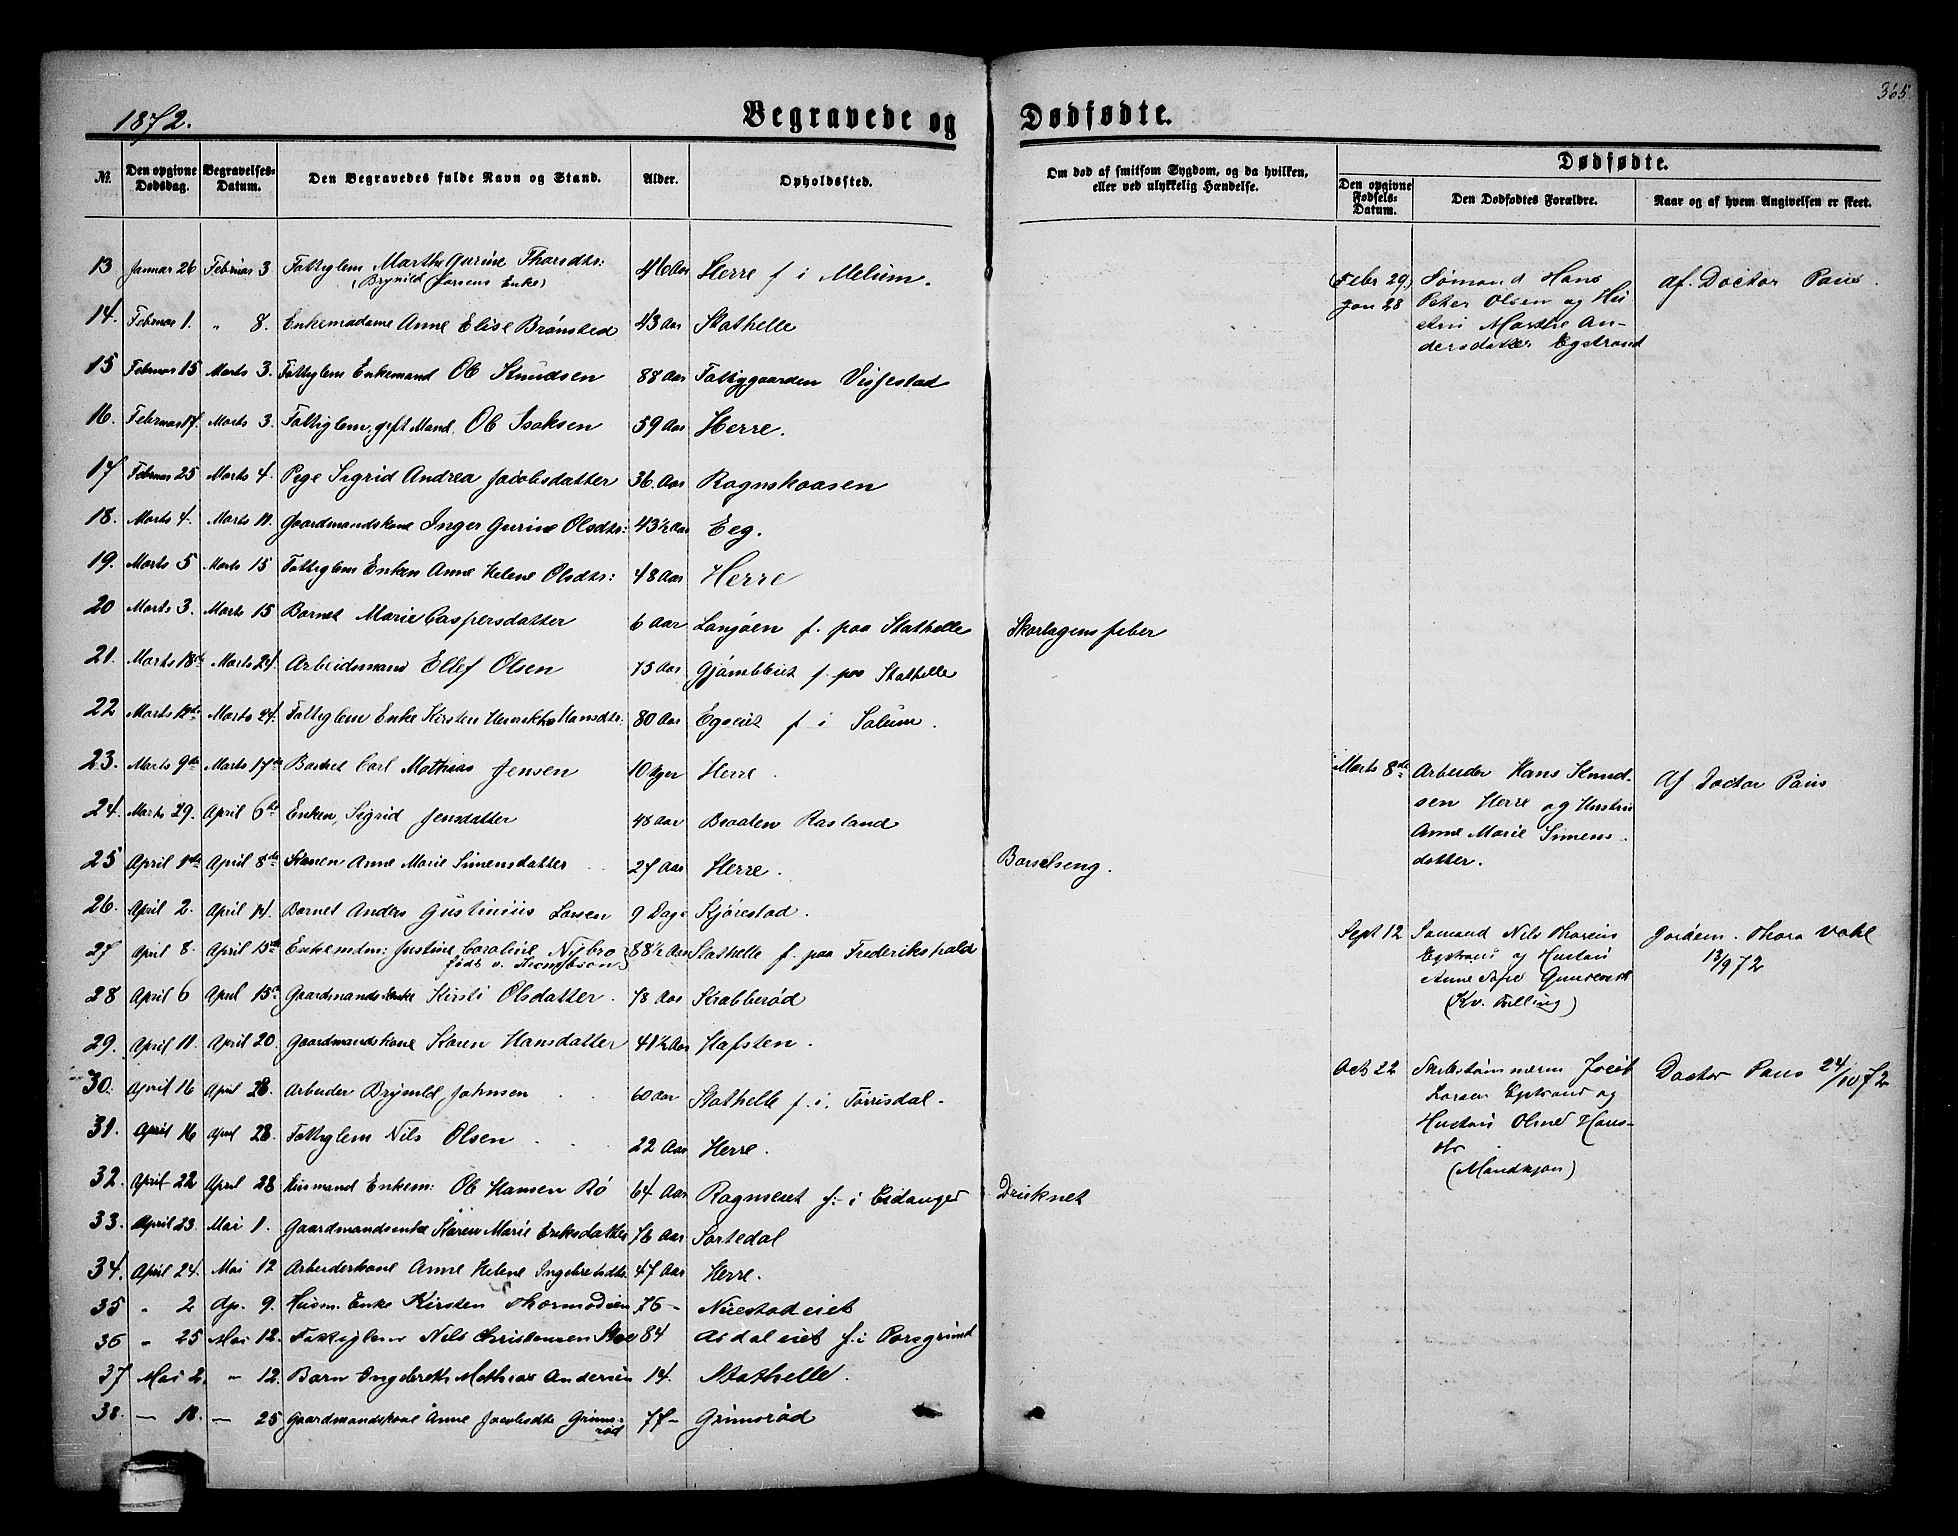 365.
1872.
Begravede og Dødfødte.
№
Den opgivne Dødsdag.
Begravelses-Datum.
Den Begravedes fulde Navn og Stand.
Alder.
Opholdssted.
Om død af smitsom Sygdom, og da hvilken, eller ved ulykkelig Hændelse.
Dødfødte.
Den opgivne Fødsels-Datum.
Den Dødfødtes Forældre.
Naar og af hvem Angivelsen er skeet.
13 Januar 26 Februar 3 Fattiglem Marthe Gurine Thorsdtr: 46 Aar Herre f i Melum.
(Brynild Enke)
14. Februar 1. " 8. Enkemadame Anne Elise Brønsted 43 Aar Stathelle
15 Februar 15 Marts 3. Fattiglem Enkemand Ole Knudsen 88 Aar Fattiggaarden Vissestad
16. Februar 17. Marts 3. Fattiglem, gift Mand, Ole Isaksen 59 Aar Herre.
17 Februar 25 Marts 4. Pige Sigrid Andrea Jacobsdatter 36. Aar Rognskaasen
18. Marts 4. Marts 11. Gaardmandskone Inger Gurine Olsdtr: 43½ Aar Eeg.
19. Marts 5 Marts 15 Fattiglem Enken Anne Helene Olsdtr: 48 Aar Herre
20 Marts 3. Marts 15 Barnet Marie Caspersdatter 6 Aar Langøen f. paa Stathelle Skarlagensfeber
21. Marts 18de Marts 24. Arbeidsmand Ellef Olsen 75 Aar f. paa Stathelle
22 Marts Marts 24. Fattiglem Enke Kirsten Hansdtr. 80 Aar Egseiet f i Solum.
23. Marts 9de Marts 17de Barnet Carl Mathias Jensen 10 Uger Herre.
24. Marts 29. April 6te Enken, Sigrid Jensdatter 48 Aar Braaten Rasland
25 April 1ste April 8de Konen Anne Marie Simensdatter 27 Aar Herre. Barselseng.
26. April 2. April 14. Barnet Anders Gustinius Larsen 9 Dage Kjørestad.
27 April 8. April 15de Enkemdm: Justine Caroline Nybro 88½ Aar Stathelle f. paa Frederikshald
født v.
28 April 6 April 15de Gaardmands Enke Kirsti Olsdatter. 78 Aar Krabberød
29. April 11. April 20. Gaardmandskone Karen Hansdatter 41½ Aar Hafsten.
30. April 16 April 28. Arbeider Brynild Johnsen 60 Aar Stathelle f. i. Torrisdal.
31. April 16 April 28. Fattiglem Nils Olsen 22 Aar Herre.
32. April 22 April 28 Husmand Enkem: Ole Hansen Rø 64 Aar Rogneiet f. i Eidanger Druknet
33. April 23. Mai 1. Gaardmandsenke Karen Marie Eriksdatter 76 Aar Sortedal
34. April 24. Mai 12 Arbeiderkone Anne Helene Ingebretsdtr. 47 Aar Herre.
35 " 2 Ap. 9. Husm. Enke Kirsten Thormodsen 76 - Nuestadeiet
36 " 25 Mai 12. Fattiglem Nils Christensen 84 Asdaleiet f. i Porsgrund
37 Mai 2. " 12. Barn Ingebreth Mathias Andersen 14. Stathelle.
38. — 18. — 25 Gaardmandskone Anne Jacobsdtr Grimsrød 77 - Grimsrød
(Febr 29) Sømand Hans af. Doctor Paus.
Jan 28 Peter Olsen og Hustru Marthe Andersdatter Egstrand
Marts 8de Arbeider Hans Knudsen Herre og Hustru Anne Marie Simensdatter. Af Doctor Paus
Sept 12 Sømand Nils Egstrand og Hustru Anne (Kv. Tvilling) Jordem. Thora Vahl 13/9 72
Oct 22 Jacob Larsen Egstrand og Hustru Oline Hansdtr (Mandkjøn) Doctor Paus 24/10 72